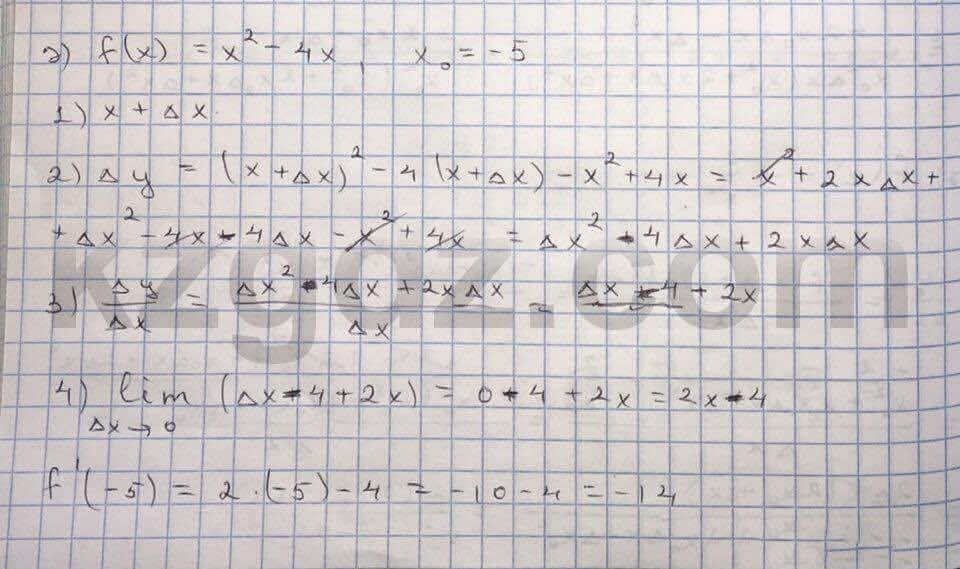 2) f(x) = x² - 4x, x₀ = -5
1) x + Δx
2) Δy = (x + Δx)² - 4(x + Δx) - x² + 4x = x² + 2xΔx +
+ Δx² - 4x - 4Δx - x² + 4x = Δx² - 4Δx + 2xΔx
3) Δy/Δx = (Δx² - 4Δx + 2xΔx)/Δx = Δx - 4 + 2x
kzgdz.com
4) lim (Δx - 4 + 2x) = 0 - 4 + 2x = 2x - 4
Δx → 0
f'(-5) = 2·(-5) - 4 = -10 - 4 = -14